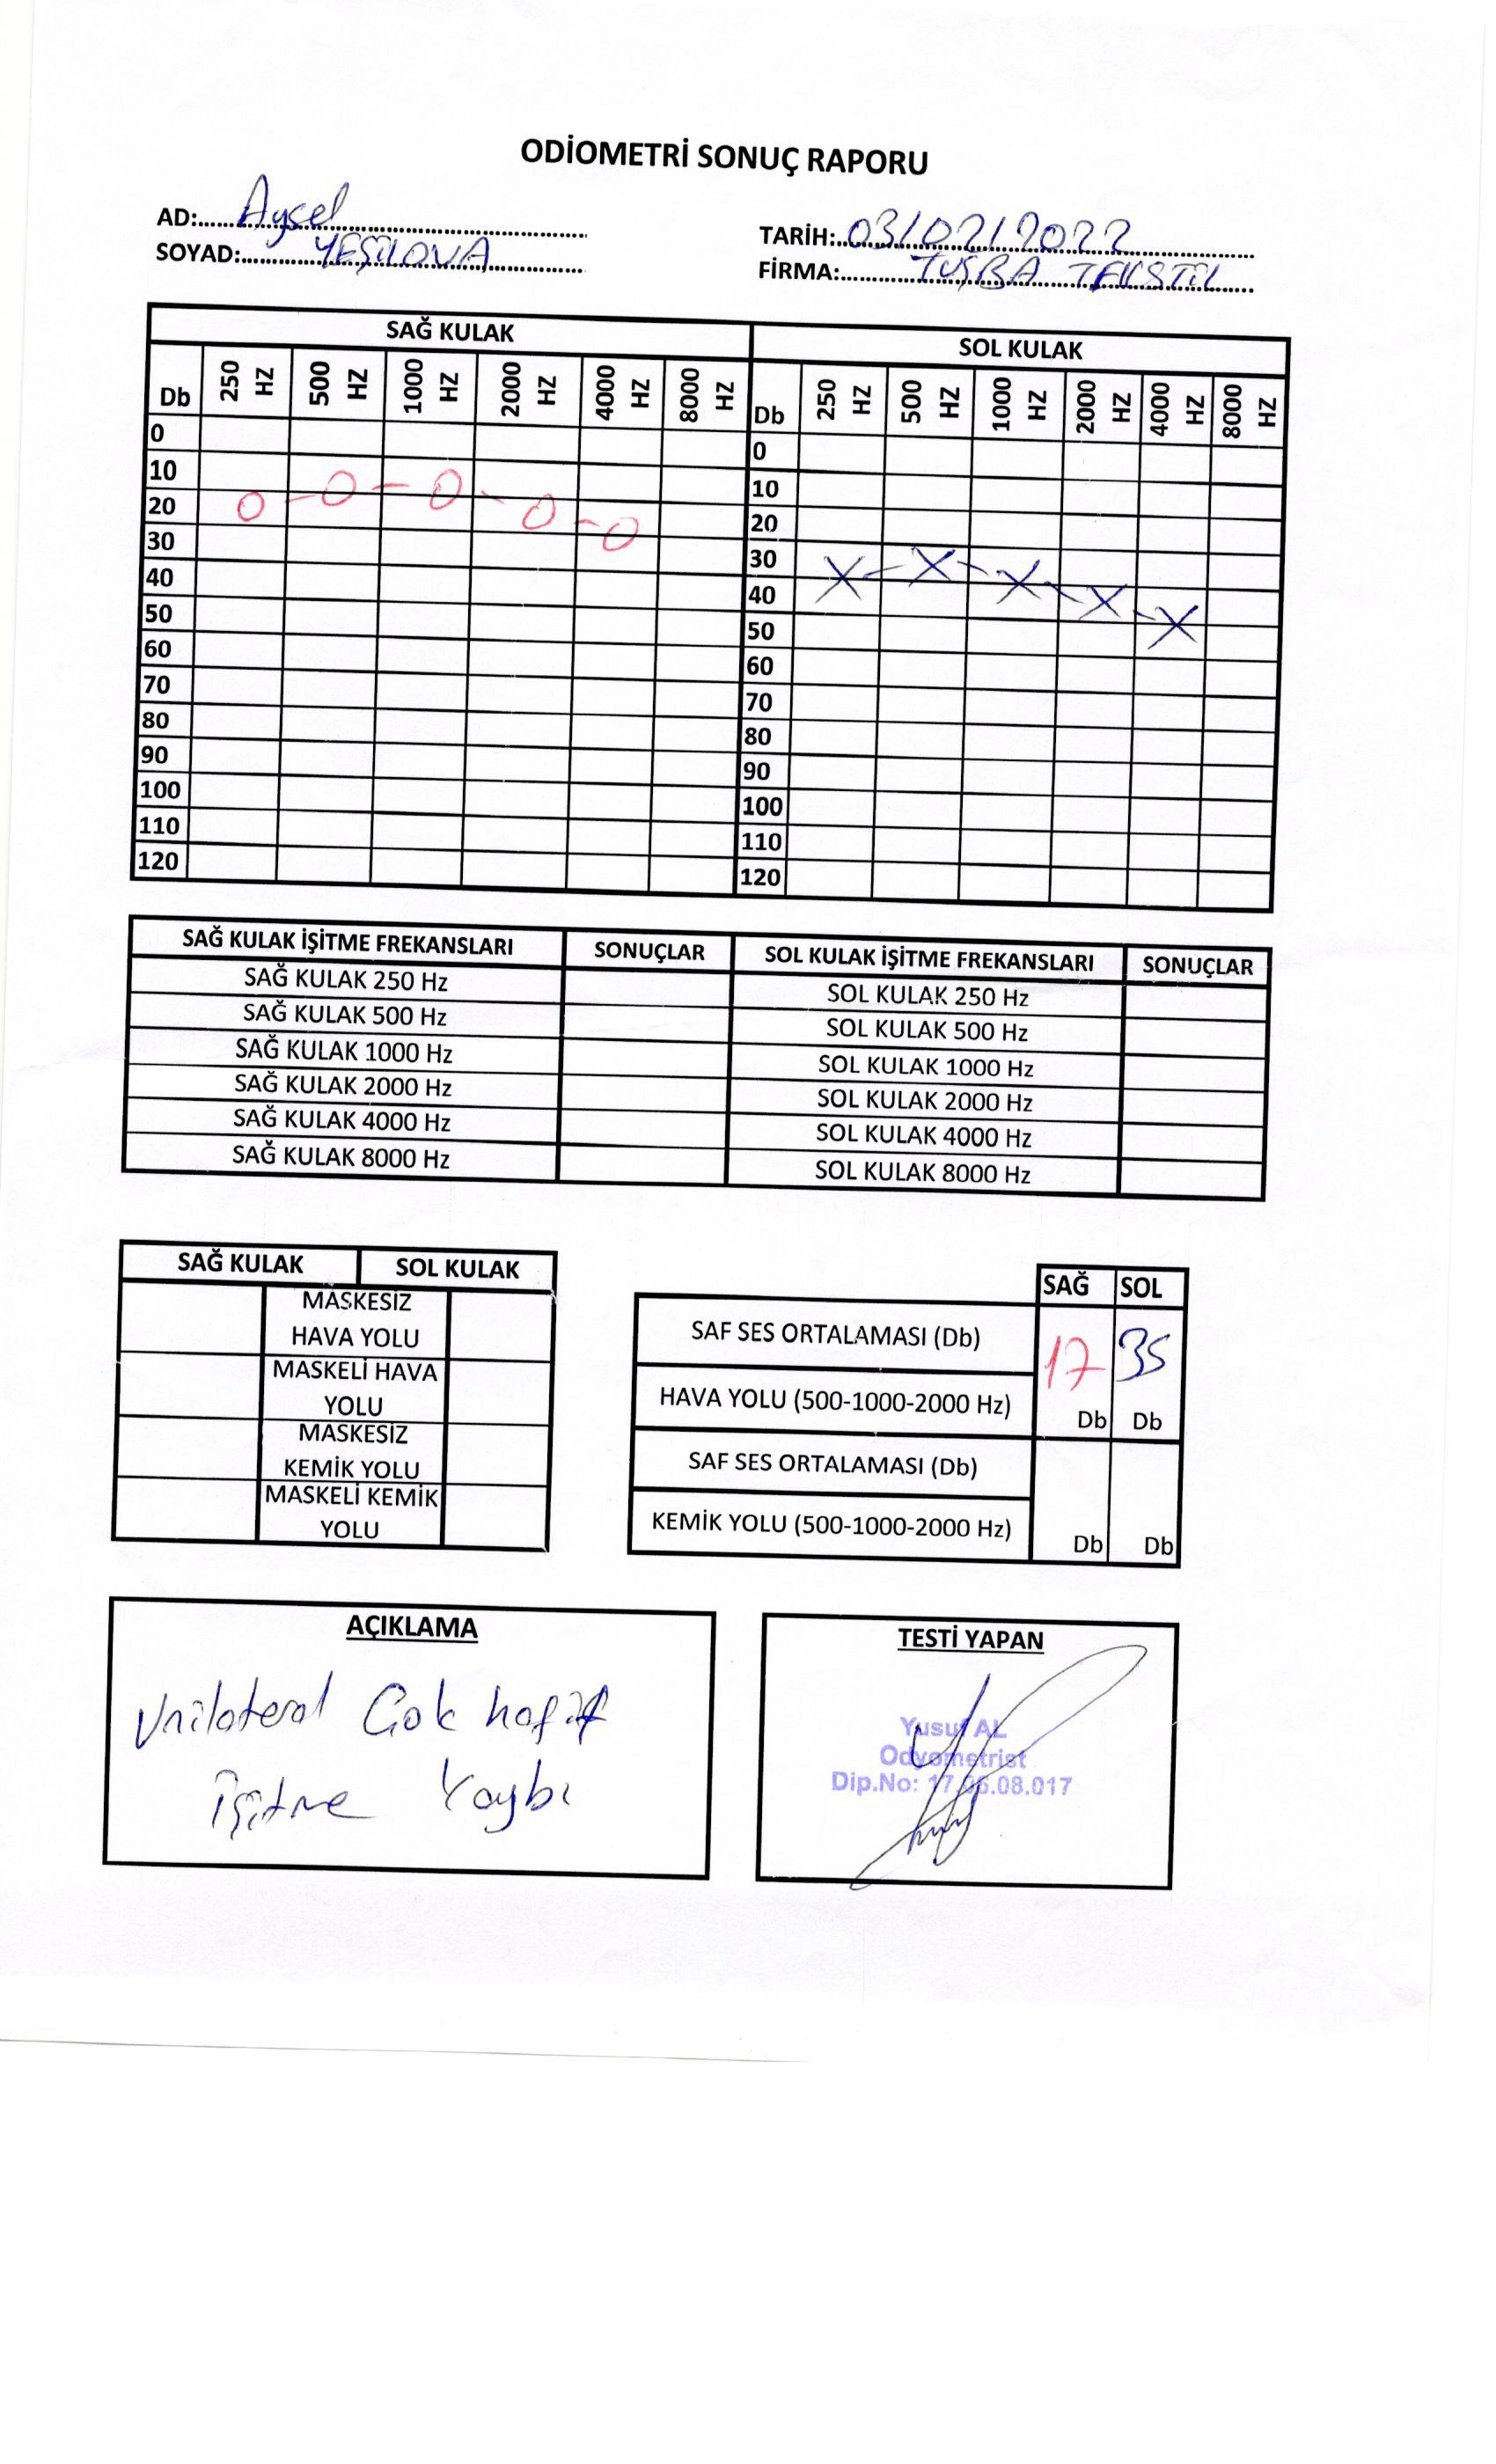 ODİOMETRİ SONUÇ RAPORU
AD: Aysel
SOYAD: YEŞİLOVA
TARİH: 03/02/2022
FİRMA: TUŞBA TEKSTİL
SAĞ KULAK SOL KULAK
Db 250 HZ 500 HZ 1000 HZ 2000 HZ 4000 HZ 8000 HZ Db 250 HZ 500 HZ 1000 HZ 2000 HZ 4000 HZ 8000 HZ
0 0
10 10
20 20
30 30
40 40
50 50
60 60
70 70
80 80
90 90
100 100
110 110
120 120
SAĞ KULAK İŞİTME FREKANSLARI SONUÇLAR SOL KULAK İŞİTME FREKANSLARI SONUÇLAR
SAĞ KULAK 250 Hz SOL KULAK 250 Hz
SAĞ KULAK 500 Hz SOL KULAK 500 Hz
SAĞ KULAK 1000 Hz SOL KULAK 1000 Hz
SAĞ KULAK 2000 Hz SOL KULAK 2000 Hz
SAĞ KULAK 4000 Hz SOL KULAK 4000 Hz
SAĞ KULAK 8000 Hz SOL KULAK 8000 Hz
SAĞ KULAK SOL KULAK
MASKESİZ
HAVA YOLU
MASKELİ HAVA
YOLU
MASKESİZ
KEMİK YOLU
MASKELİ KEMİK
YOLU
SAĞ SOL
SAF SES ORTALAMASI (Db) 17 35
HAVA YOLU (500-1000-2000 Hz) Db Db
SAF SES ORTALAMASI (Db)
KEMİK YOLU (500-1000-2000 Hz) Db Db
AÇIKLAMA
Unilateral Çok hafif
İşitme Kaybı
TESTİ YAPAN
Yusuf AL
Odyometrist
Dip.No: 17.06.08.017